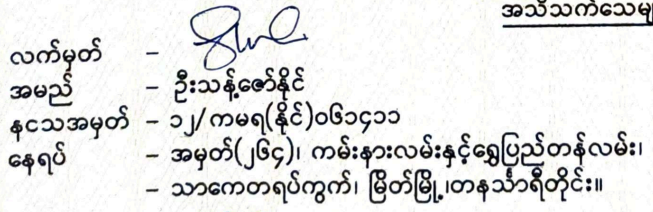 လက်မှတ် –
အမည် – ဦးသန့်ဇော်နိုင်
နငသအမှတ် – ၁၂/ကမရ(နိုင်)၀၆၁၄၁၁
နေရပ် – အမှတ်(၂၆၄)၊ ကမ်းနားလမ်းနှင့်ရွှေပြည်တန်လမ်း၊
– သာကေတရပ်ကွက်၊ မြိတ်မြို့၊တနင်္သာရီတိုင်း။